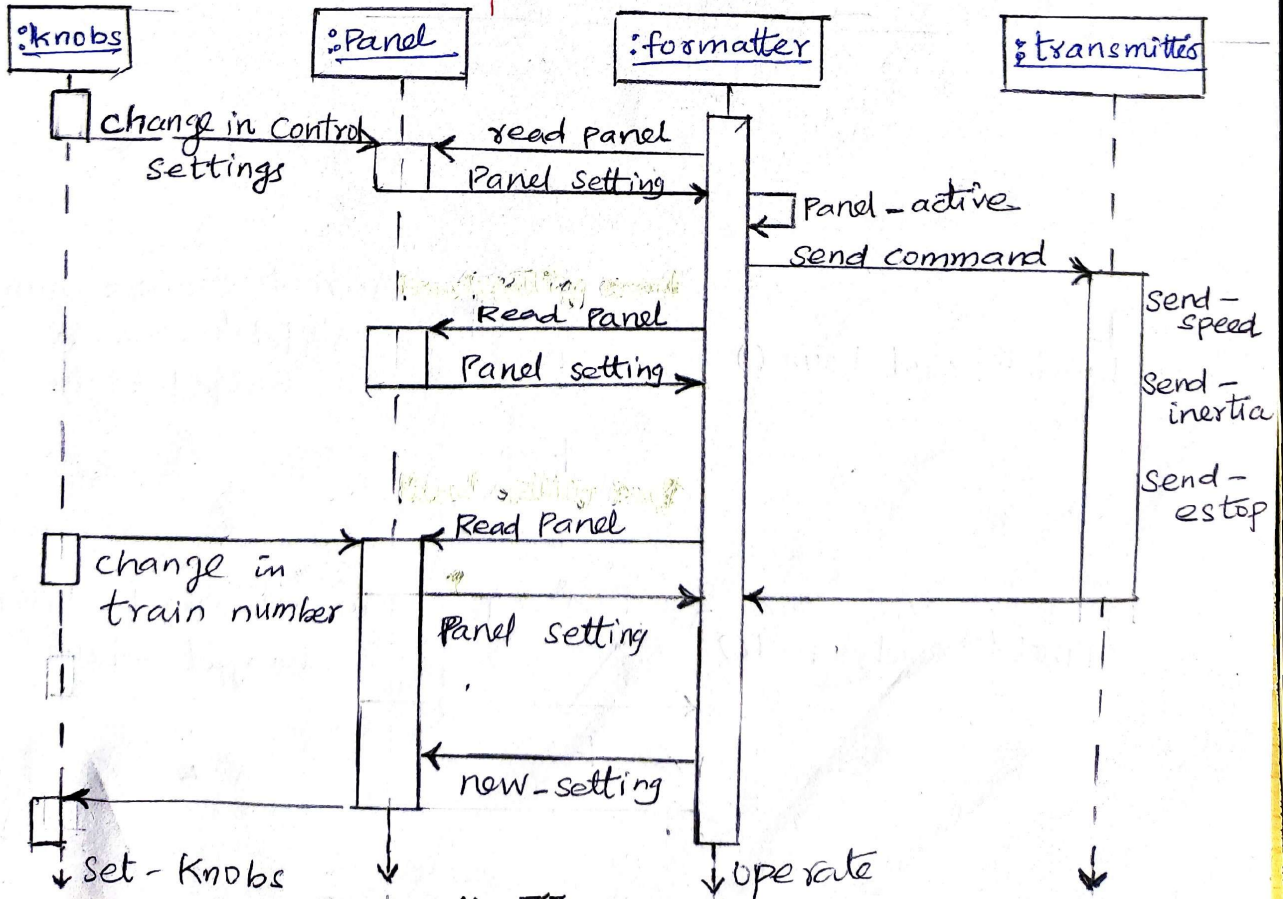 :knobs
:Panel
:formatter
:transmitter
change in Control
settings
read panel
Panel setting
Panel-active
send command
Send-
speed
Read Panel
Panel setting
Send-
inertia
Send-
estop
Read Panel
change in
train number
Panel setting
new-setting
set-Knobs
operate